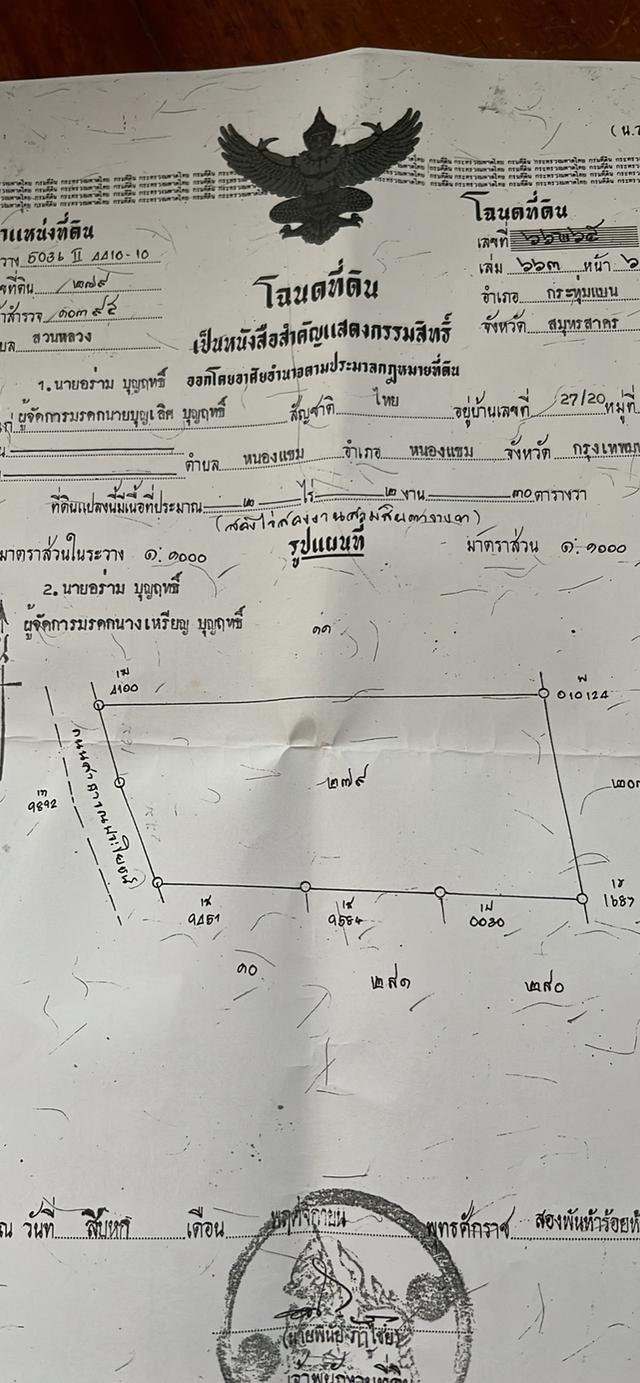 (น.
โฉนดที่ดิน
ตำแหน่งที่ดิน
เลขที่ ๖๖๒๖๕
วาง 5036 II 4410-10
เล่ม ๖๖๓ หน้า ๖
ที่ดิน ๒๗๙
โฉนดที่ดิน
อำเภอ กระทุ่มแบน
สำรวจ ๑๐๓๙๕
จังหวัด สมุทรสาคร
บล สวนหลวง
เป็นหนังสือสำคัญแสดงกรรมสิทธิ์
ออกโดยอาศัยอำนาจตามประมวลกฎหมายที่ดิน
1. นายอร่าม บุญฤทธิ์
ผู้จัดการมรดกนายบุญเลิศ บุญฤทธิ์ สัญชาติ ไทย อยู่บ้านเลขที่ 27/20 หมู่ที่
ตำบล หนองแขม อำเภอ หนองแขม จังหวัด กรุงเทพม
ที่ดินแปลงนี้มีเนื้อที่ประมาณ ๒ ไร่ ๒ งาน ๓๐ ตารางวา
(สองไร่สองงานสามสิบตารางวา)
มาตราส่วนในระวาง ๑:๑๐๐๐ รูปแผนที่ มาตราส่วน ๑:๑๐๐๐
2. นายอร่าม บุญฤทธิ์
ผู้จัดการมรดกนางเหรียญ บุญฤทธิ์
๑๑
4100
พ
010124
ถนนสาธารณประโยชน์
๒๗๙
9892
1687
9451
9584
0030
๑๐
๒๘๑
๒๘๐
ณ วันที่ สิบหก เดือน พฤศจิกายน พุทธศักราช สองพันห้าร้อย
เจ้าพนักงานที่ดิน